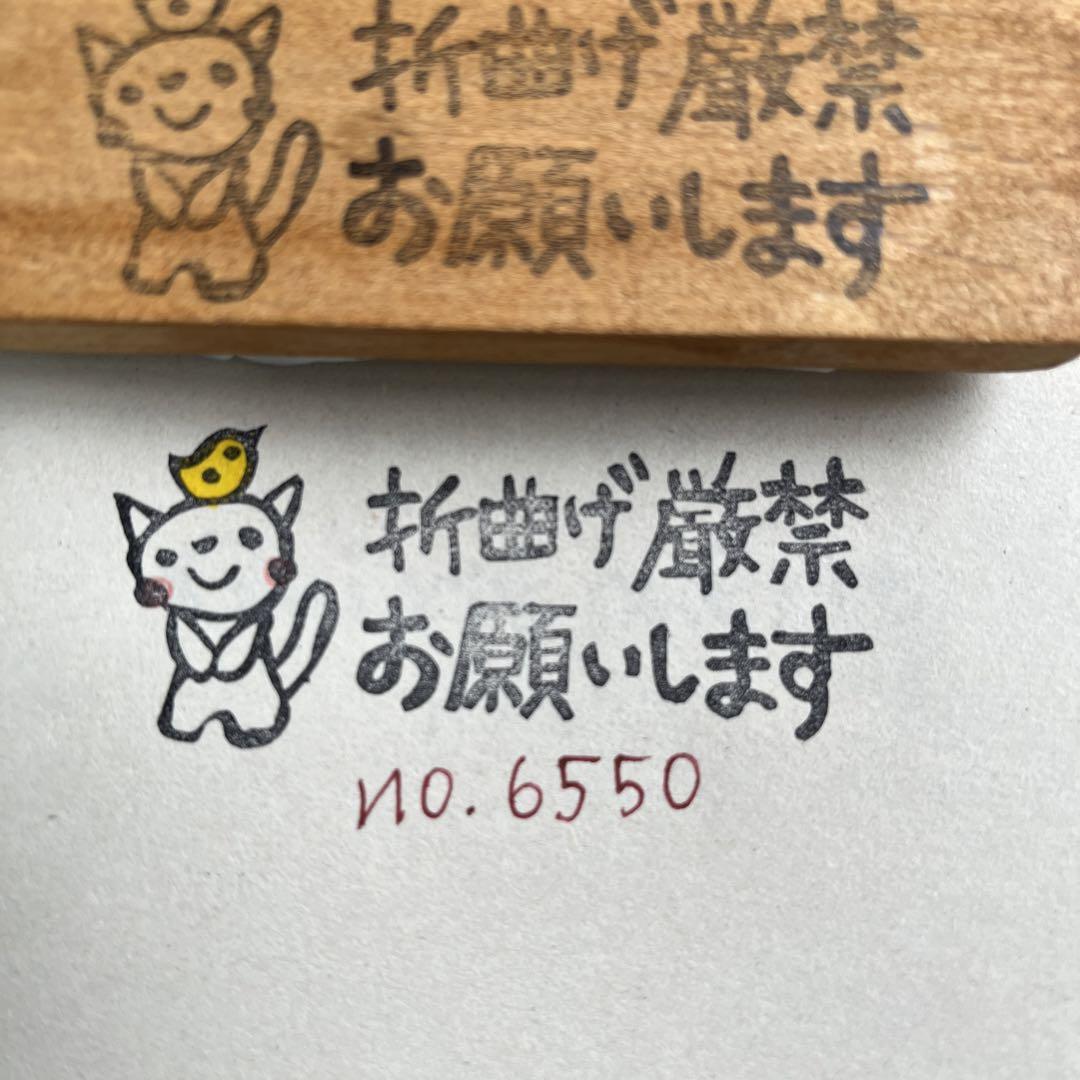 折曲げ厳禁
お願いします
折曲げ厳禁
お願いします
no.6550